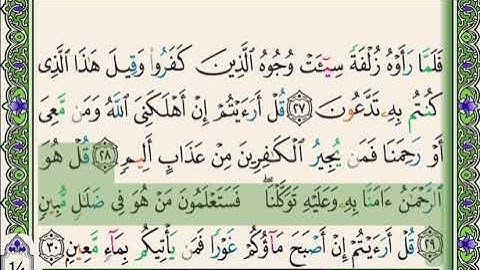 فَلَمَّا رَأَوْهُ زُلْفَةً سِيٓـَٔتْ وُجُوهُ الَّذِينَ كَفَرُوا وَقِيلَ هَذَا الَّذِى
كُنتُم بِهِۦ تَدَّعُونَ ﴿٢٧﴾ قُلْ أَرَءَيْتُمْ إِنْ أَهْلَكَنِىَ اللَّهُ وَمَن مَّعِىَ
أَوْ رَحِمَنَا فَمَن يُجِيرُ الْكَٰفِرِينَ مِنْ عَذَابٍ أَلِيمٍ ﴿٢٨﴾ قُلْ هُوَ
الرَّحْمَٰنُ ءَامَنَّا بِهِۦ وَعَلَيْهِ تَوَكَّلْنَا ۖ فَسَتَعْلَمُونَ مَنْ هُوَ فِى ضَلَٰلٍ مُّبِينٍ
﴿٢٩﴾ قُلْ أَرَءَيْتُمْ إِنْ أَصْبَحَ مَآؤُكُمْ غَوْرًا فَمَن يَأْتِيكُم بِمَآءٍ مَّعِينٍۭ ﴿٣٠﴾